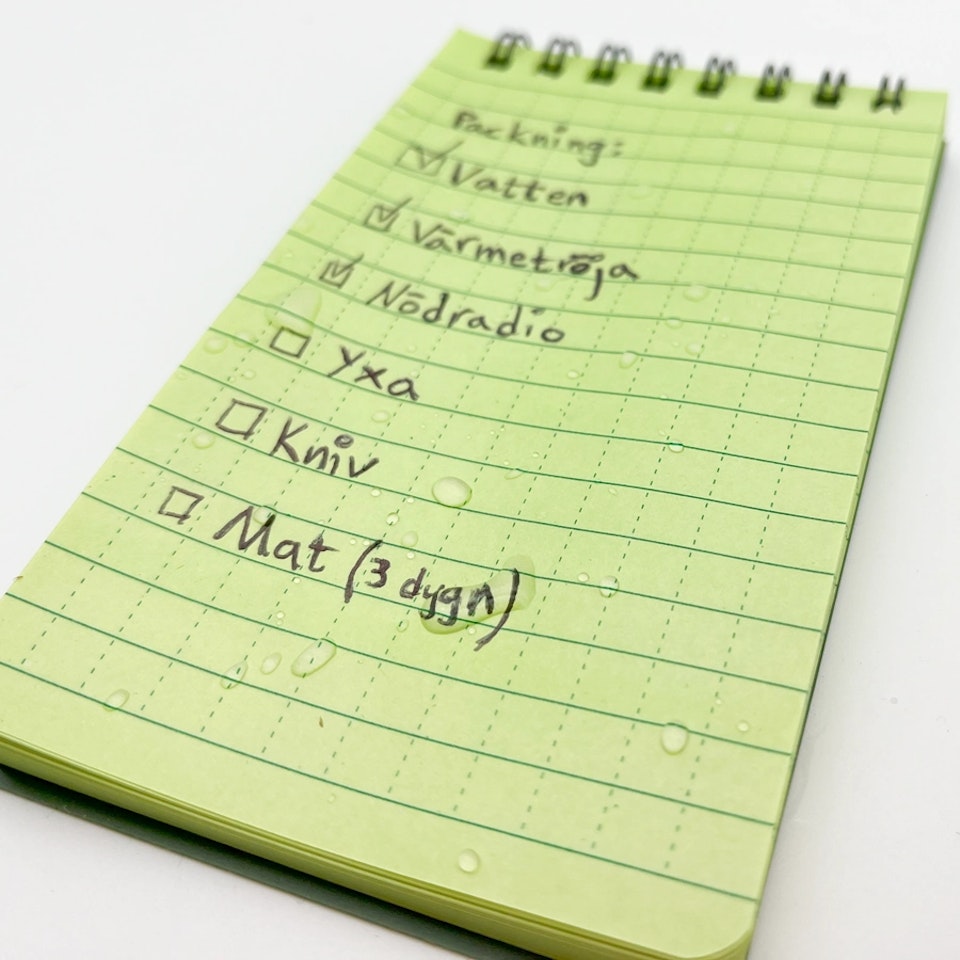 Packning:
☑ Vatten
☑ Värmetröja
☑ Nödradio
☐ Yxa
☐ Kniv
☐ Mat (3 dygn)